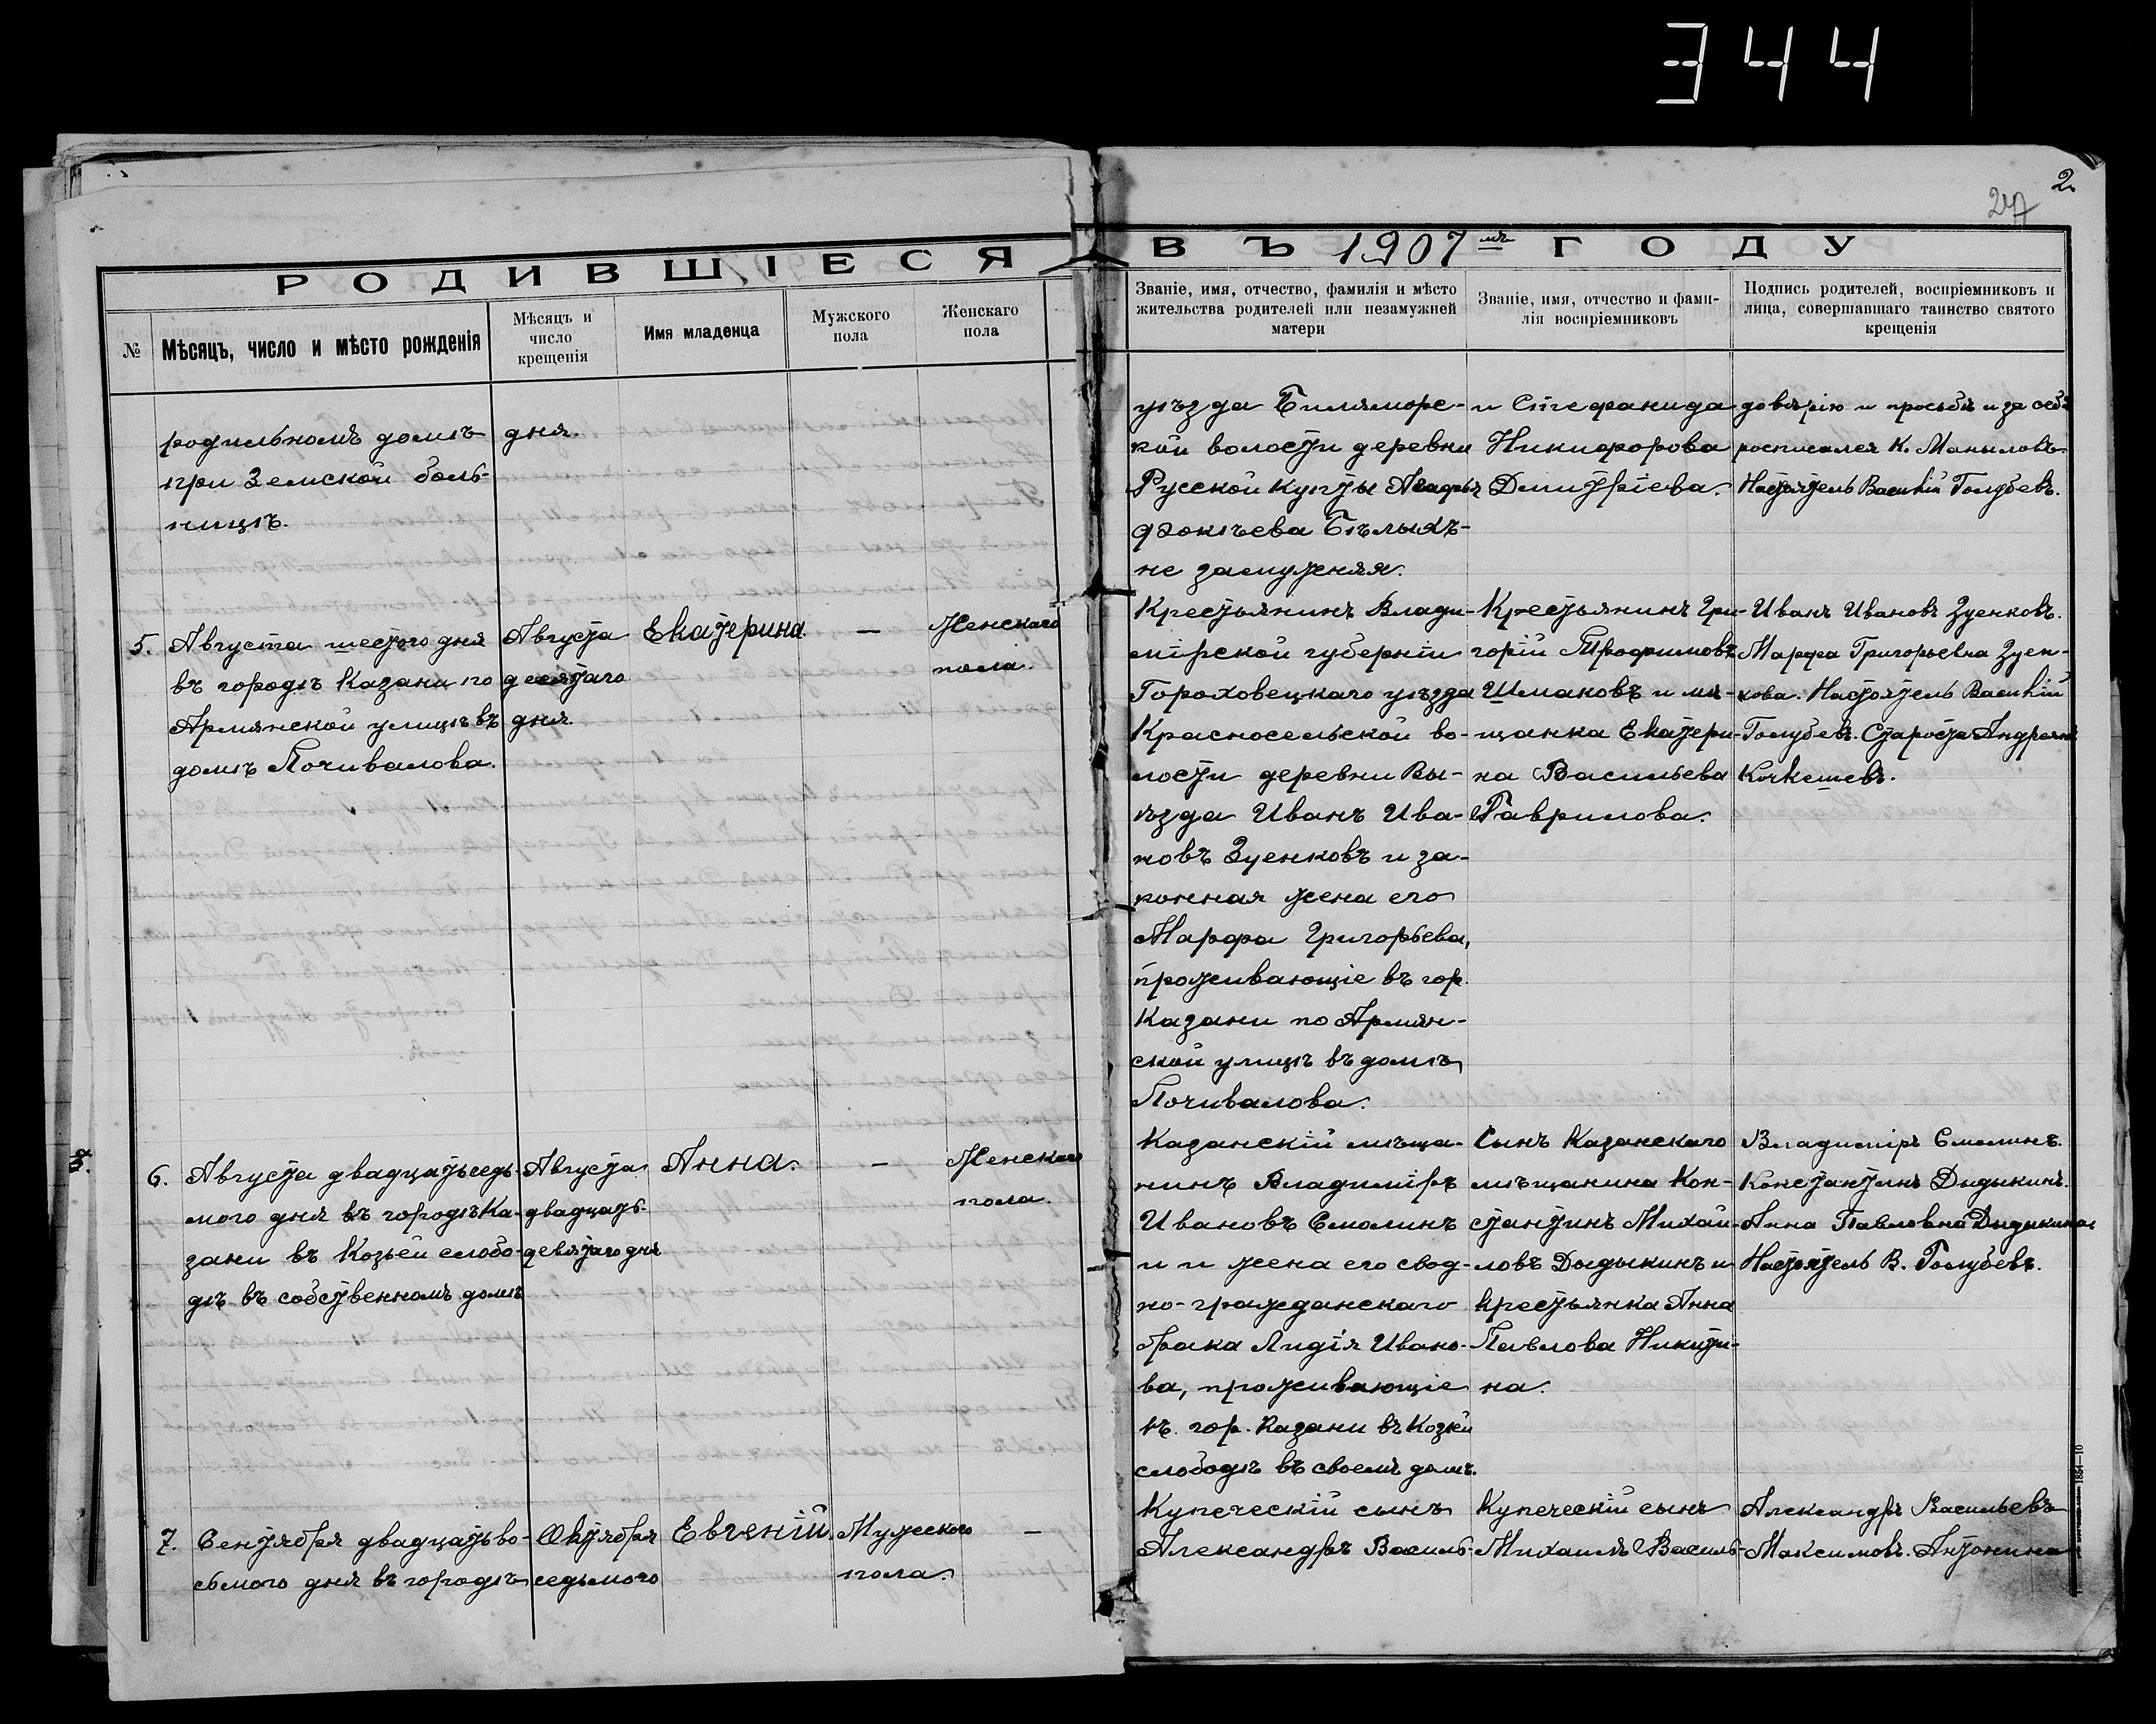 344
2.
РОДИВШІЕСЯ
ВЪ 1907мъ ГОДУ
№
Мѣсяцъ, число и мѣсто рожденія
Мѣсяцъ и
число
крещенія
Имя младенца
Мужского
пола
Женскаго
пола
Званіе, имя, отчество, фамилія и мѣсто
жительства родителей или незамужней
матери
Званіе, имя, отчество и фами-
лія воспріемниковъ
Подпись родителей, воспріемниковъ и
лица, совершавшаго таинство святого
крещенія
родильномъ домѣ
при Земской боль-
ницѣ.
дня.
уѣзда Билямор-
кой волости деревни
Русской Купты Агафья
Фокѣева Бѣлыхъ
не замужняя.
и Стефанида
Никифорова
Дмитріева.
довѣрію и просьбѣ и за себя
росписался К. Маныловъ.
Настоятель Василій Голубевъ.
5.
Августа шестого дня
въ городѣ Казани по
Армянской улицѣ въ
домѣ Почивалова.
Августа
десятаго
дня.
Екатерина.
—
Женскаго
пола.
Крестьянинъ Влади-
мірской губерніи
Гороховецкаго уѣзда
Красносельской во-
лости деревни Вы-
ѣзда Иванъ Ива-
новъ Зуенковъ и за-
конная жена его
Марфа Григорьева,
проживающіе въ гор.
Казани по Армян-
ской улицѣ въ домѣ
Почивалова.
Крестьянинъ Гри-
горій Трофимовъ
Шмаковъ и мѣ-
щанка Екатери-
на Васильева
Гаврилова.
Иванъ Ивановъ Зуенковъ.
Марфа Григорьевна Зуен-
кова. Настоятель Василій
Голубевъ. Староста Андреянъ
Кочкешевъ.
6.
Августа двадцатьседь-
мого дня въ городѣ Ка-
зани въ Козьей слобо-
дѣ въ собственномъ домѣ
Августа
двадцать
девятаго дня
Анна.
—
Женскаго
пола.
Казанскій мѣща-
нинъ Владиміръ
Ивановъ Смолинъ
и и жена его свод-
но-гражданскаго
брака Лидія Ивано-
ва, проживающіе
въ гор. Казани въ Козьей
слободѣ въ своемъ домѣ.
Сынъ Казанскаго
мѣщанина Кон-
стантинъ Михай-
ловъ Дыдыкинъ и
крестьянка Анна
Павлова Никити-
на.
Владиміръ Смолинъ.
Константинъ Дыдыкинъ.
Анна Павловна Дыдыкина
Настоятель В. Голубевъ.
7.
Сентября двадцатьво-
сьмого дня въ городѣ
Октября
седьмого
Евгеній.
Мужского
пола.
—
Купеческій сынъ
Александръ Василь-
Купеческій сынъ
Михаилъ Василь-
Александръ Васильевъ
Максимовъ. Антонина